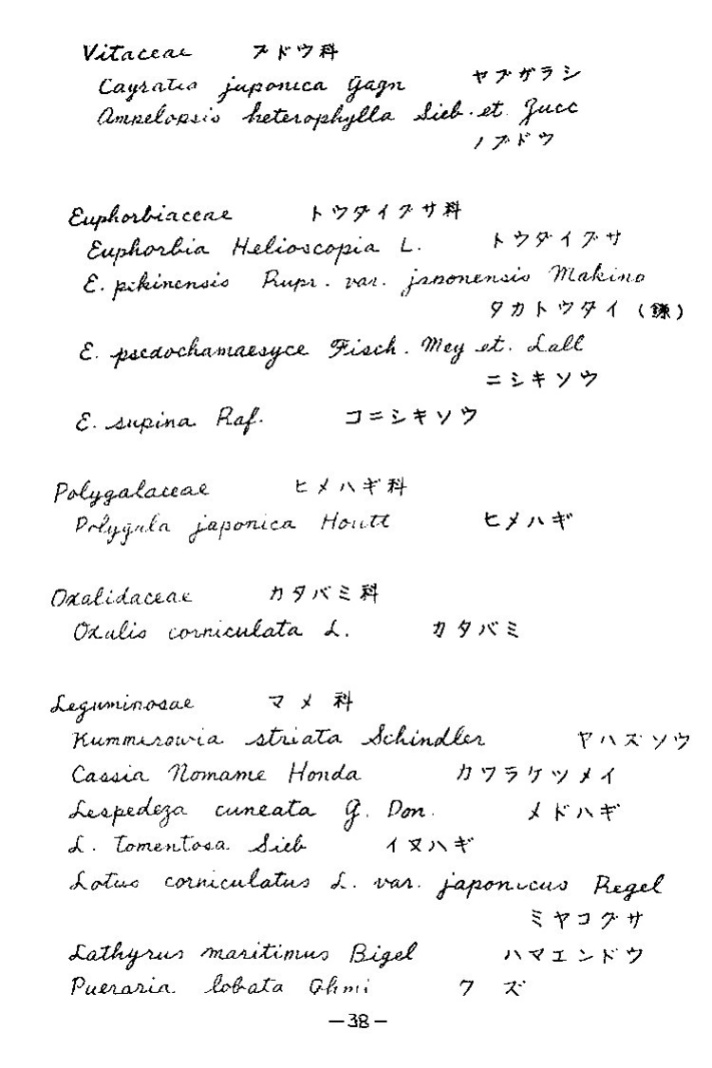 Vitaceae ブドウ科
Cayratia japonica Gagn ヤブガラシ
Ampelopsis heterophylla Sieb. et. Zucc
ノブドウ
Euphorbiaceae トウダイグサ科
Euphorbia Helioscopia L. トウダイグサ
E. pikinensis Rupr. var. japonensis Makino
タカトウタイ (鎌)
E. psedochamaesyce Fisch. Mey et. Lall
ニシキソウ
E. supina Raf. コニシキソウ
Polygalaceae ヒメハギ科
Polygala japonica Houtt ヒメハギ
Oxalidaceae カタバミ科
Oxalis corniculata L. カタバミ
Leguminosae マメ科
Kummerowia striata Schindler ヤハズソウ
Cassia Nomame Honda カワラケツメイ
Lespedeza cuneata G. Don. メドハギ
L. tomentosa Sieb イヌハギ
Lotus corniculatus L. var. japonicus Regel
ミヤコグサ
Lathyrus maritimus Bigel ハマエンドウ
Pueraria lobata Ohmi クズ
—38—